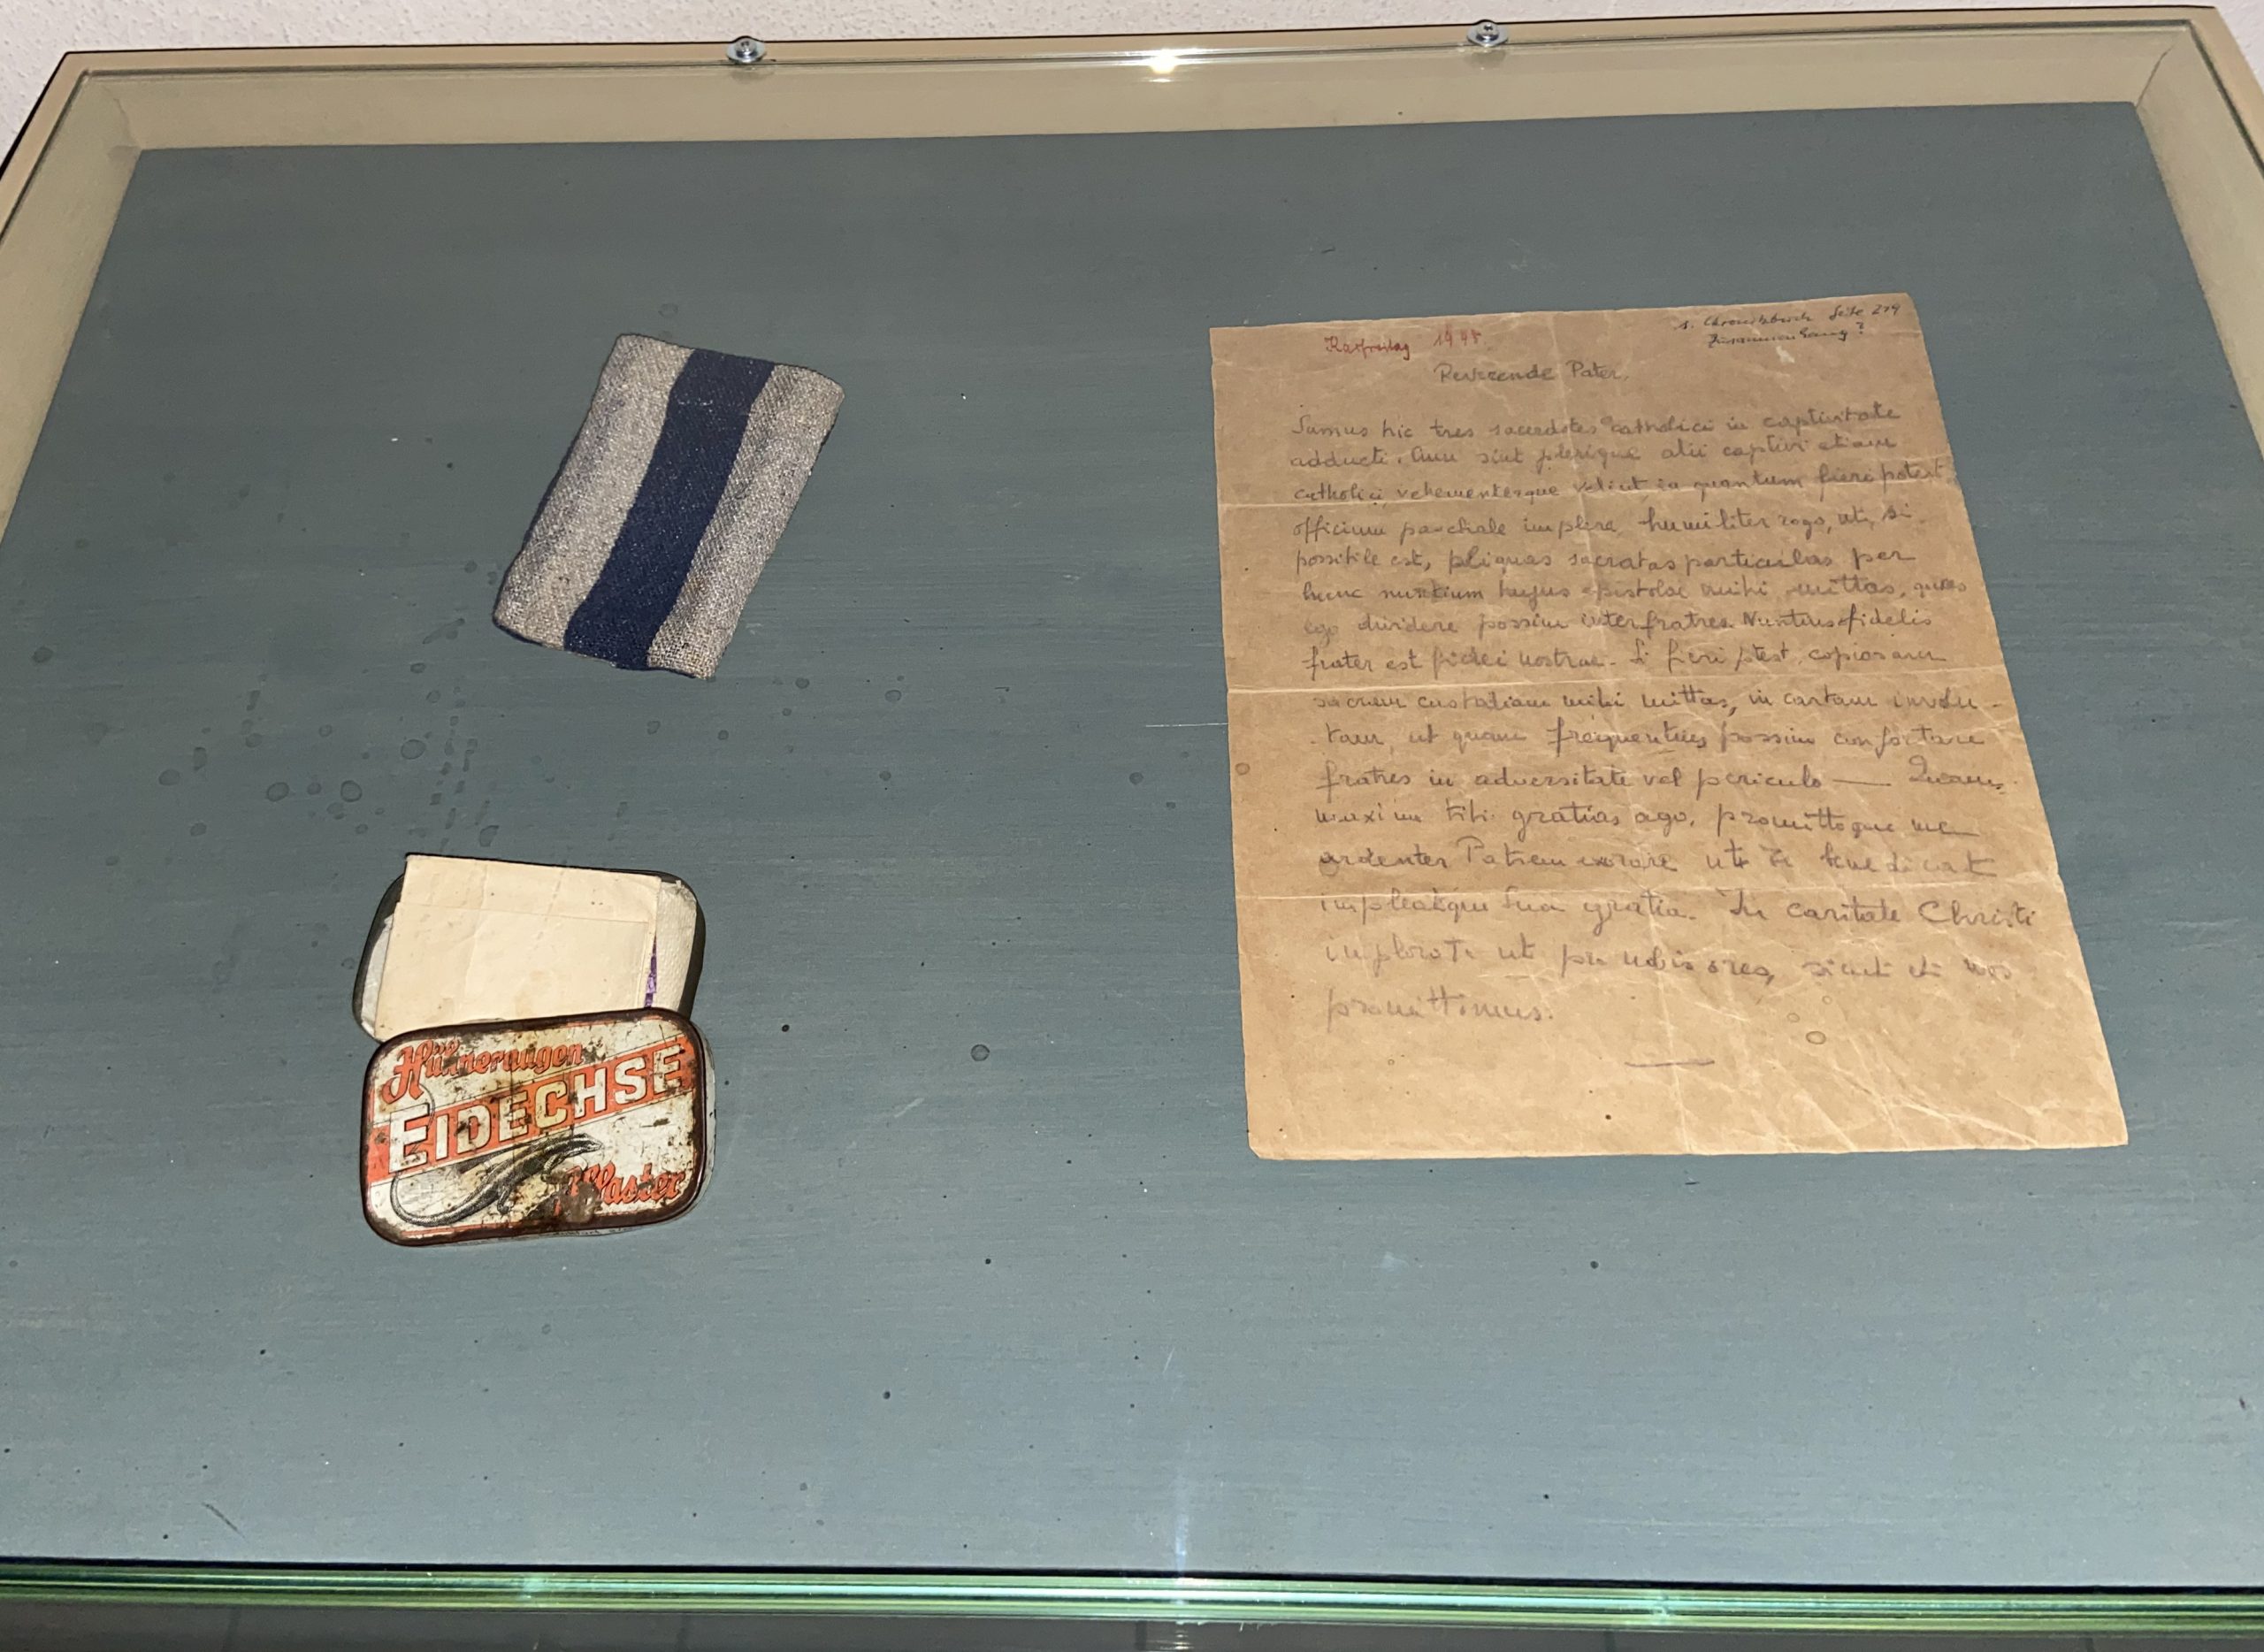 Karfreitag 1945.
s. Chronikbuch Seite 219
Zusammenhang?
Reverende Pater,
Sumus hic tres sacerdotes catholici in captivitate
adducti. Cum sint plerique alii captivi etiam
catholici, vehementesque velint, in quantum fieri potest,
officium paschale implere, humiliter rogo, uti, si
possibile est, aliquas sacratas particulas per
hunc nuntium hujus epistolae mihi mittas, quas
ego dividere possim inter fratres. Nuntius fidelis
frater est fidei nostrae. Si fieri potest, copiosam
sacram custodiam mihi mittas, in cartam involu-
tam, ut quam frequentius possim confortare
fratres in adversitate vel periculo — Quam
maxime tibi gratias ago, promittoque me
ardenter Patrem exorare uti te benedicat
impleatque sua gratia. In caritate Christi
imploro te ut pro nobis ores, sicuti et nos
promittimus.
Hühneraugen
EIDECHSE
Pflaster